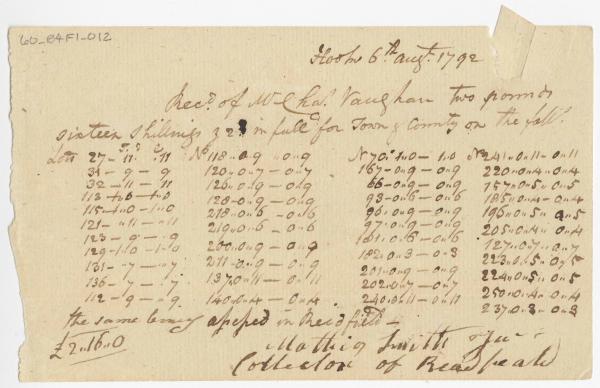 60-B4F1-012
6th augt. 1792
Recd. of Mr. Chas. Vaughan two pounds
sixteen shillings & 2 in full for Town & County on the foll.
Lotts 27-11-11 No 118 0 9 0 9 No 70 1 0 1 0 No 241 0 11 0 11
31-9-9 120 0 7 0 7 167 0 9 0 9 220 0 4 0 4
32-11-11 126 0 9 0 9 66 0 9 0 9 157 0 5 0 5
113 1 0 1 0 128 0 9 0 9 93 0 6 0 6 185 0 4 0 4
115 1 0 1 0 218 0 6 0 6 96 0 9 0 9 196 0 5 0 5
121 11 11 219 0 6 0 6 97 0 9 0 9 205 0 4 0 4
123-9-9 200 0 9 0 9 101 0 6 0 6 127 0 7 0 7
129 1 0 1 0 211 0 9 0 9 182 0 3 0 3 223 0 5 0 5
131-7-7 137 0 11 0 11 201 0 9 0 9 224 0 5 0 5
136-7-7 140 0 4 0 4 202 0 7 0 7 250 0 4 0 4
112-9-9 240 0 11 0 11 237 0 3 0 3
the same being in Readfield
£2 16 0
Smith Jur
Collector of Readfield